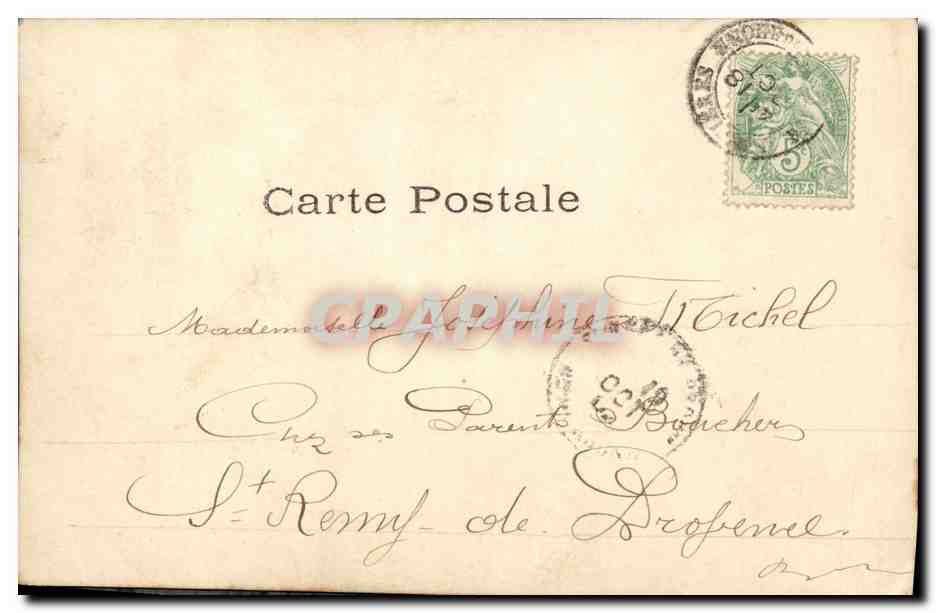 5
POSTES
Carte Postale
CPAPHIL
Mademoiselle Joséphine Michel
Chez ses Parents Bouchers
St Remy de Provence